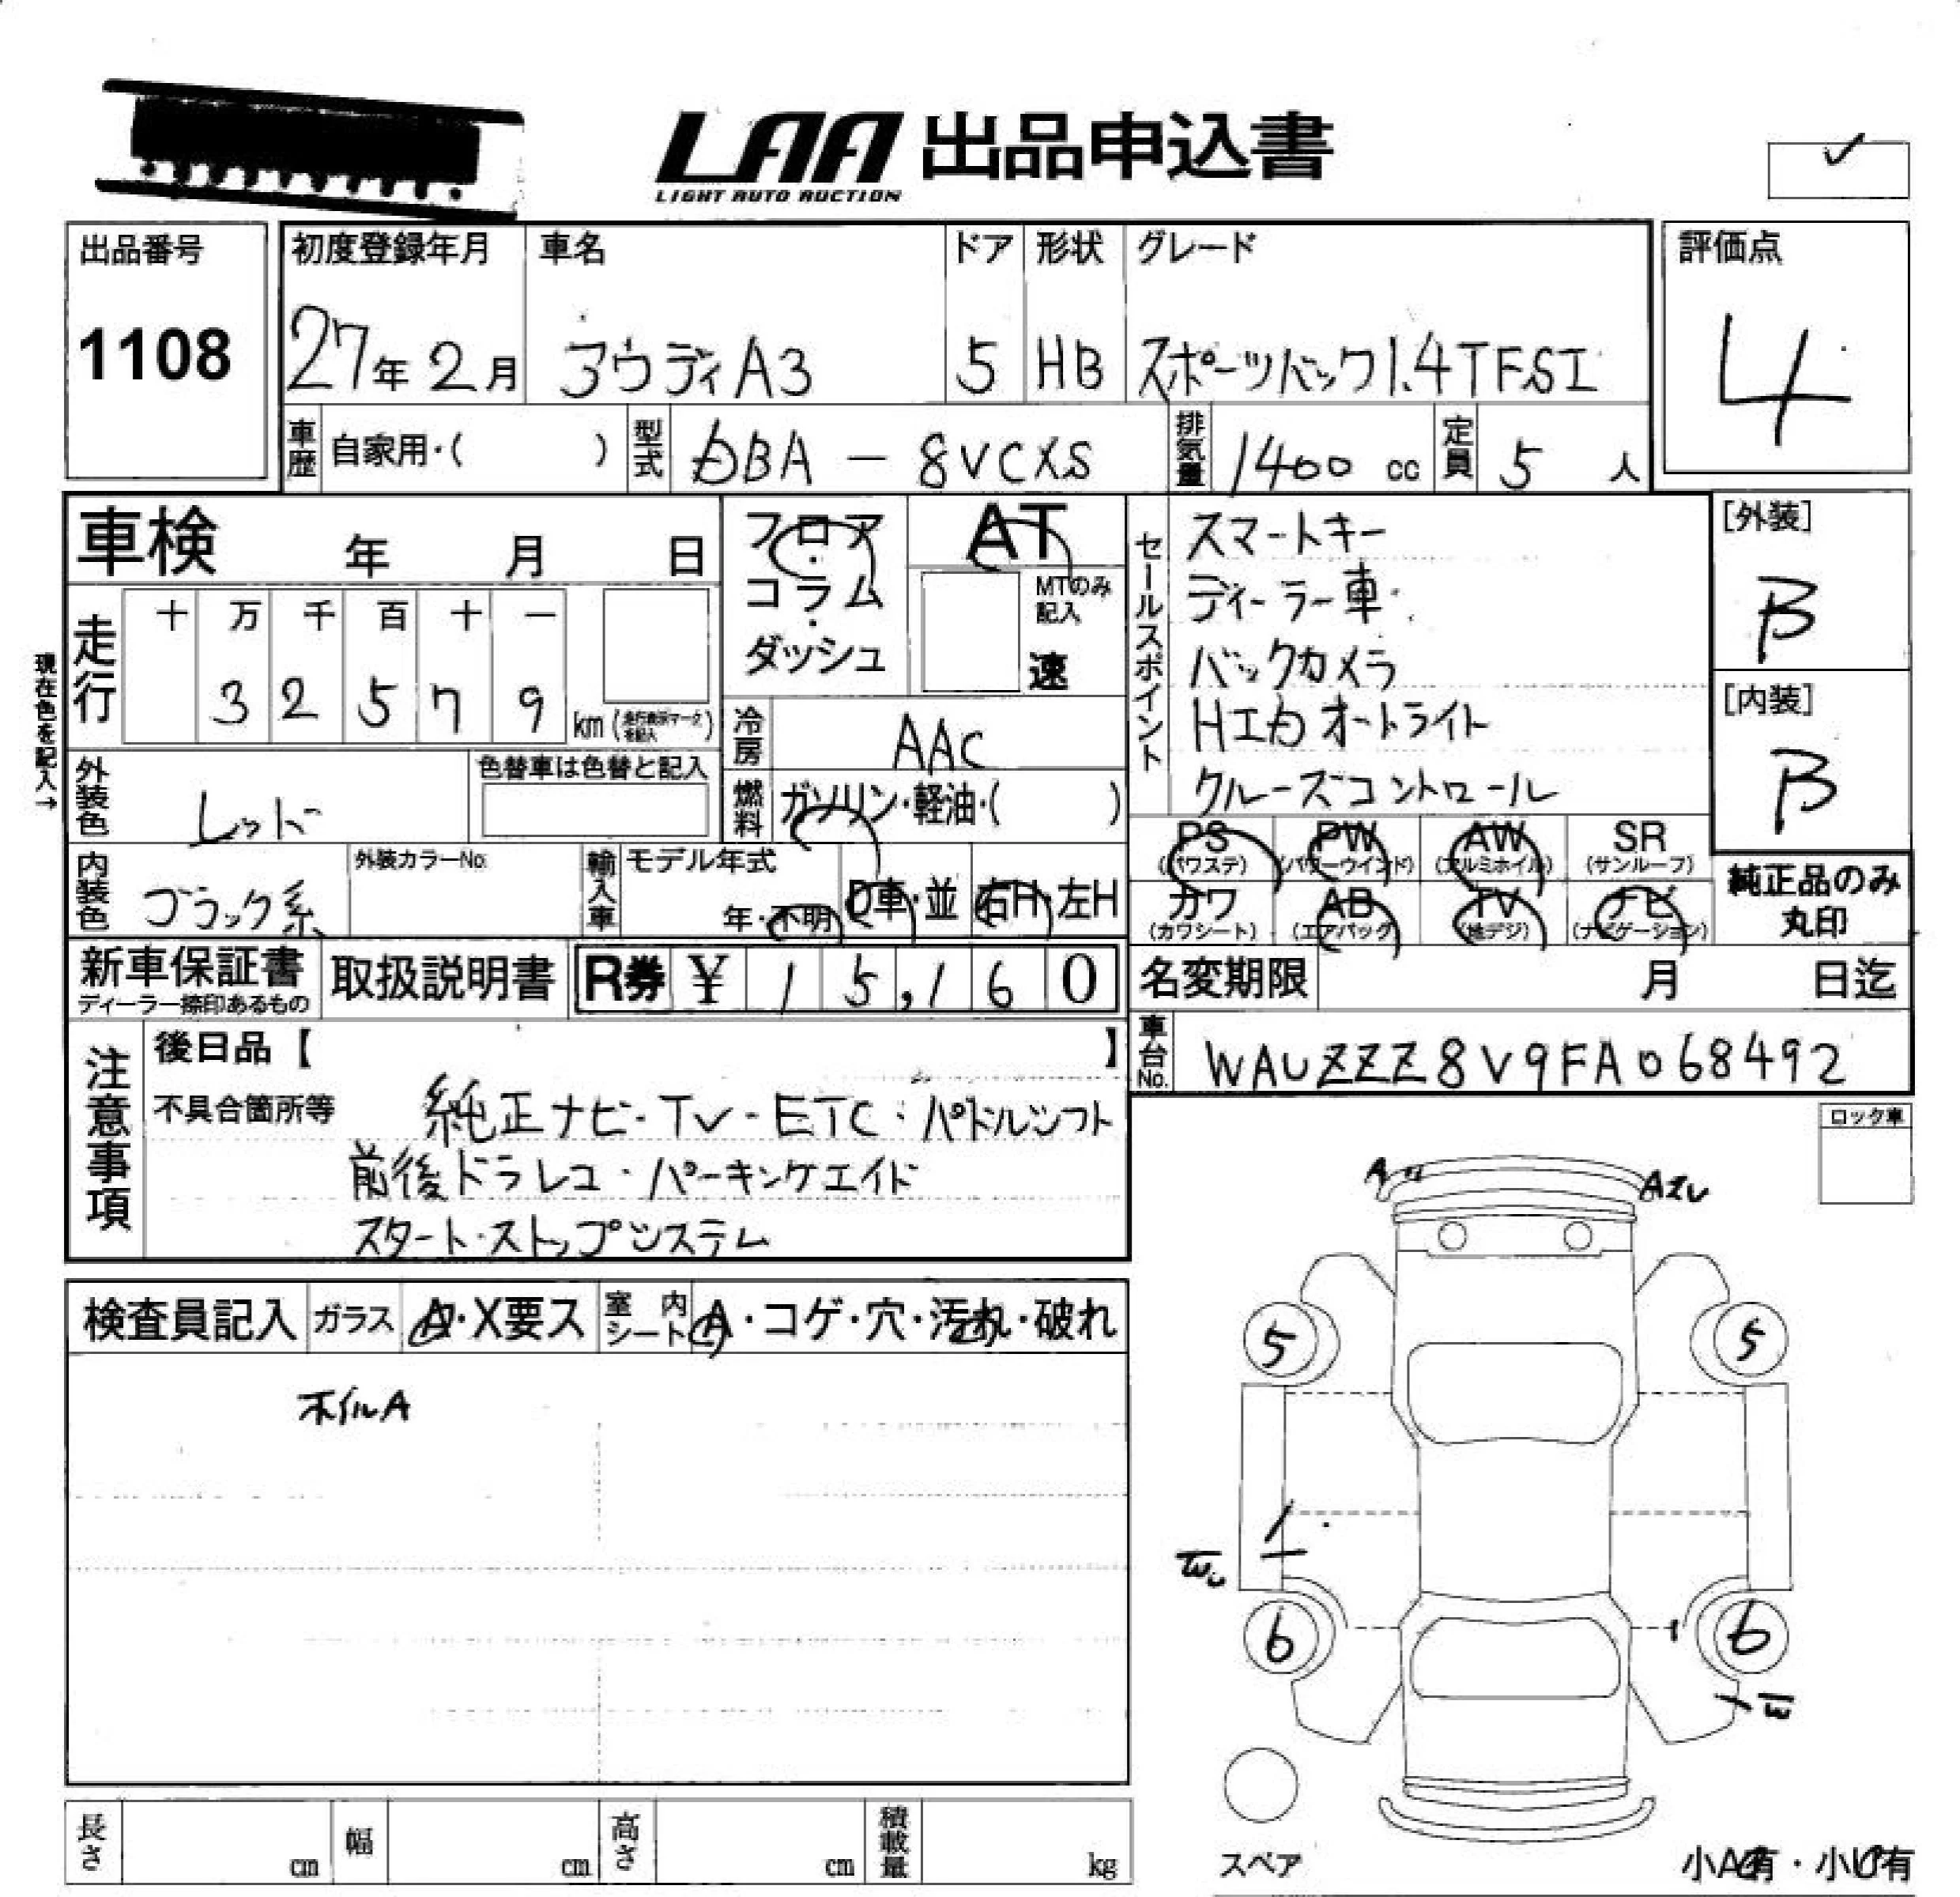 LAA 出品申込書
LIGHT AUTO AUCTION
出品番号
1108
初度登録年月
27年2月
車名
アウディA3
ドア
5
形状
HB
グレード
スポーツバック1.4TFSI
評価点
4
車歴 自家用・( )
型式 DBA - 8VCXS
排気量 1400 cc
定員 5 人
車検 年 月 日
フロア・コラム・ダッシュ
AT
MTのみ記入
速
セールスポイント
スマートキー
ディーラー車
バックカメラ
HID オートライト
クルーズコントロール
[外装]
B
[内装]
B
現在色を記入→
走行
十 万 千 百 十 一
3 2 5 7 9
km
冷房 AAC
外装色 レッド
色替車は色替と記入
燃料 ガソリン・軽油・( )
内装色 ブラック系
外装カラーNo.
輸入車 モデル年式
年・不明
D車・並
右H・左H
PS (パワステ)
PW (パワーウインド)
AW (アルミホイル)
SR (サンルーフ)
カワ (カワシート)
AB (エアバッグ)
TV (地デジ)
ナビ (ナビゲーション)
純正品のみ
丸印
新車保証書
ディーラー捺印あるもの
取扱説明書
R券 ¥ 15,160
名変期限 月 日迄
車台No. WAUZZZ8V9FA068492
注意事項
後日品【 】
不具合箇所等
純正ナビ・TV・ETC・パドルシフト
前後ドラレコ・パーキングエイド
スタート・ストップシステム
ロック車
検査員記入
ガラス
・X要ス
室内シート
A・コゲ・穴・汚れ・破れ
ホイルA
A
5
5
6
6
スペア
長さ cm
幅 cm
高さ cm
積載量 kg
小A有・小U有